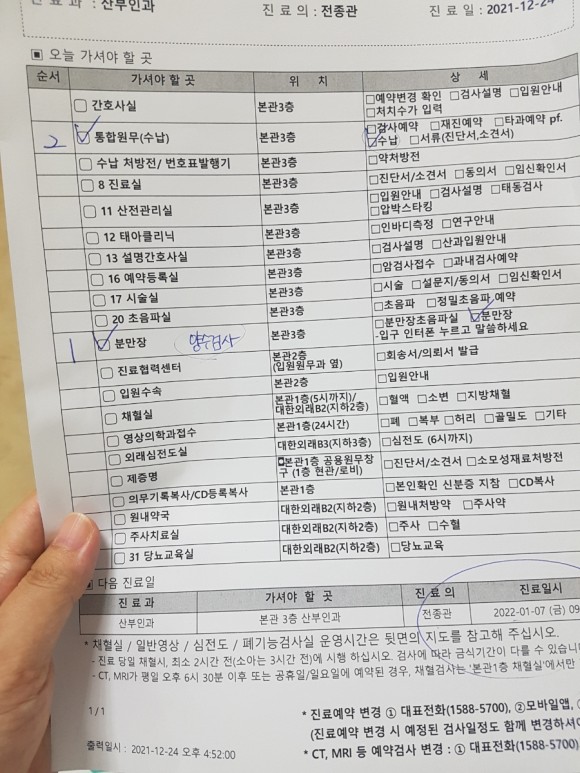 진 료 과 : 산부인과 진 료 의 : 전종관 진 료 일 : 2021-12-24
▣ 오늘 가셔야 할 곳
순서 가셔야 할 곳 위 치 상 세
□ 간호사실 본관3층 □예약변경 확인 □검사설명 □입원안내
□처치수가 입력
2 ☑ 통합원무(수납) 본관3층 □검사예약 □재진예약 □타과예약 pf.
☑수납 □서류(진단서,소견서)
□ 수납 처방전/ 번호표발행기 본관3층 □약처방전
□ 8 진료실 본관3층 □진단서/소견서 □동의서 □임신확인서
□ 11 산전관리실 본관3층 □입원안내 □검사설명 □태동검사
□압박스타킹
□ 12 태아클리닉 본관3층 □인바디측정 □연구안내
□ 13 설명간호사실 본관3층 □검사설명 □산과입원안내
□ 16 예약등록실 본관3층 □암검사접수 □과내검사예약
□ 17 시술실 본관3층 □시술 □설문지/동의서 □임신확인서
□ 20 초음파실 본관3층 □초음파 □정밀초음파 예약
1 ☑ 분만장 양수검사 본관3층 □분만장초음파실 ☑분만장
-입구 인터폰 누르고 말씀하세요
□ 진료협력센터 본관2층
(입원원무과 옆) □회송서/의뢰서 발급
□ 입원수속 본관2층 □입원안내
□ 채혈실 본관1층(5시까지)/
대한외래B2(지하2층) □혈액 □소변 □지방채혈
□ 영상의학과접수 본관1층(24시간) □폐 □복부 □허리 □골밀도 □기타
□ 외래심전도실 대한외래B3(지하3층) □심전도 (6시까지)
□ 제증명 본관1층 공용원무창
구 (1층 현관/로비) □진단서/소견서 □소모성재료처방전
□ 의무기록복사/CD등록복사 본관1층 □본인확인 신분증 지참 □CD복사
□ 원내약국 대한외래B2(지하2층) □원내처방약 □주사약
□ 주사치료실 대한외래B2(지하2층) □주사 □수혈
□ 31 당뇨교육실 대한외래B2(지하2층) □당뇨교육
▣ 다음 진료일
진 료 과 가셔야 할 곳 진 료 의 진료일시
산부인과 본관 3층 산부인과 전종관 2022-01-07 (금) 09
* 채혈실 / 일반영상 / 심전도 / 폐기능검사실 운영시간은 뒷면의 지도를 참고해 주십시오.
- 진료 당일 채혈시, 최소 2시간 전(소아는 3시간 전)에 시행 하십시오. 검사에 따라 금식기간이 다를 수 있습
- CT, MRI가 평일 오후 6시 30분 이후 또는 공휴일/일요일에 예약된 경우, 채혈검사는 '본관1층 채혈실'에서만
1 / 1
* 진료예약 변경 ① 대표전화(1588-5700), ②모바일앱,
(진료예약 변경 시 예정된 검사일정도 함께 변경하셔야
* CT, MRI 등 예약검사 변경 : ① 대표전화(1588-5700)
출력일시 : 2021-12-24 오후 4:52:00